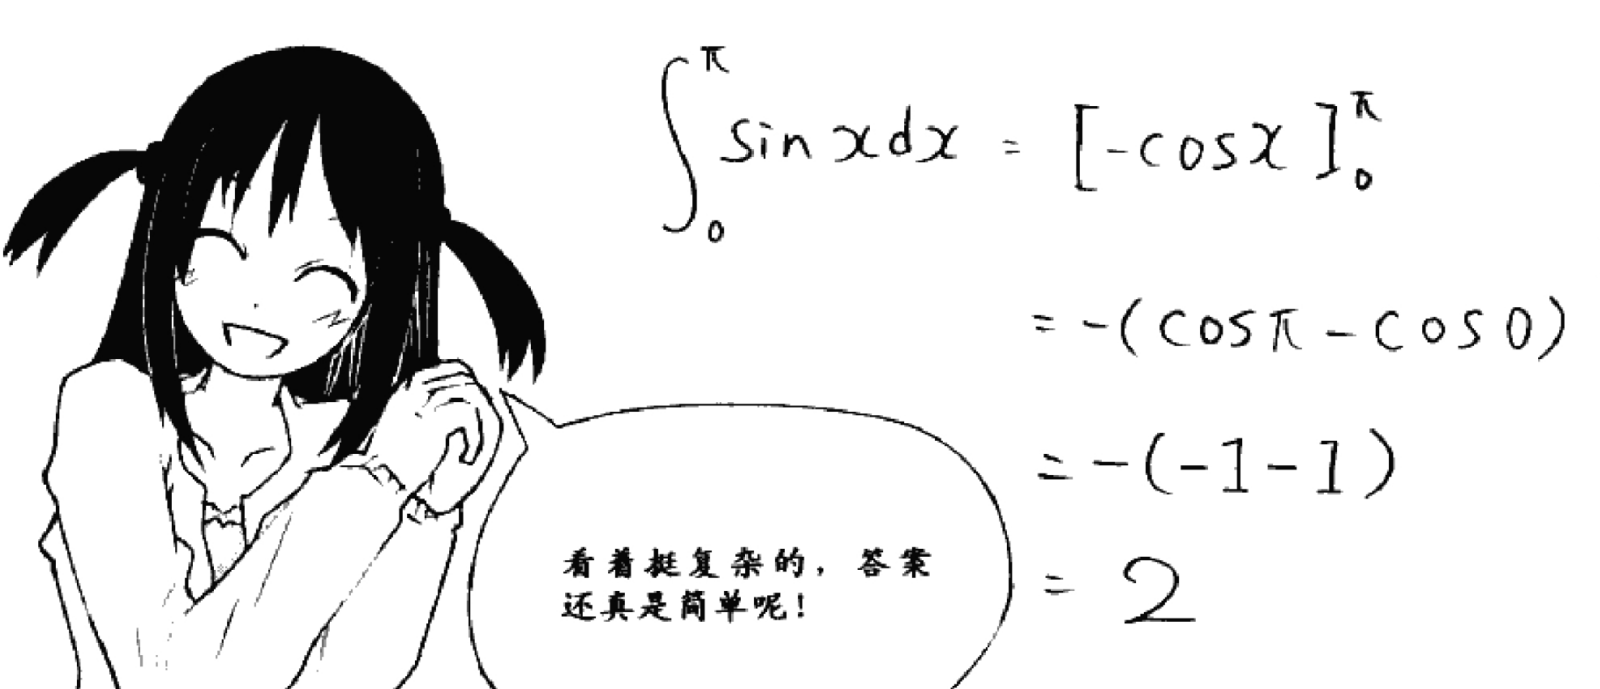 ∫₀^π sin x dx = [-cos x]₀^π
= -(cos π - cos 0)
= -(-1-1)
= 2
看着挺复杂的，答案
还真是简单呢！